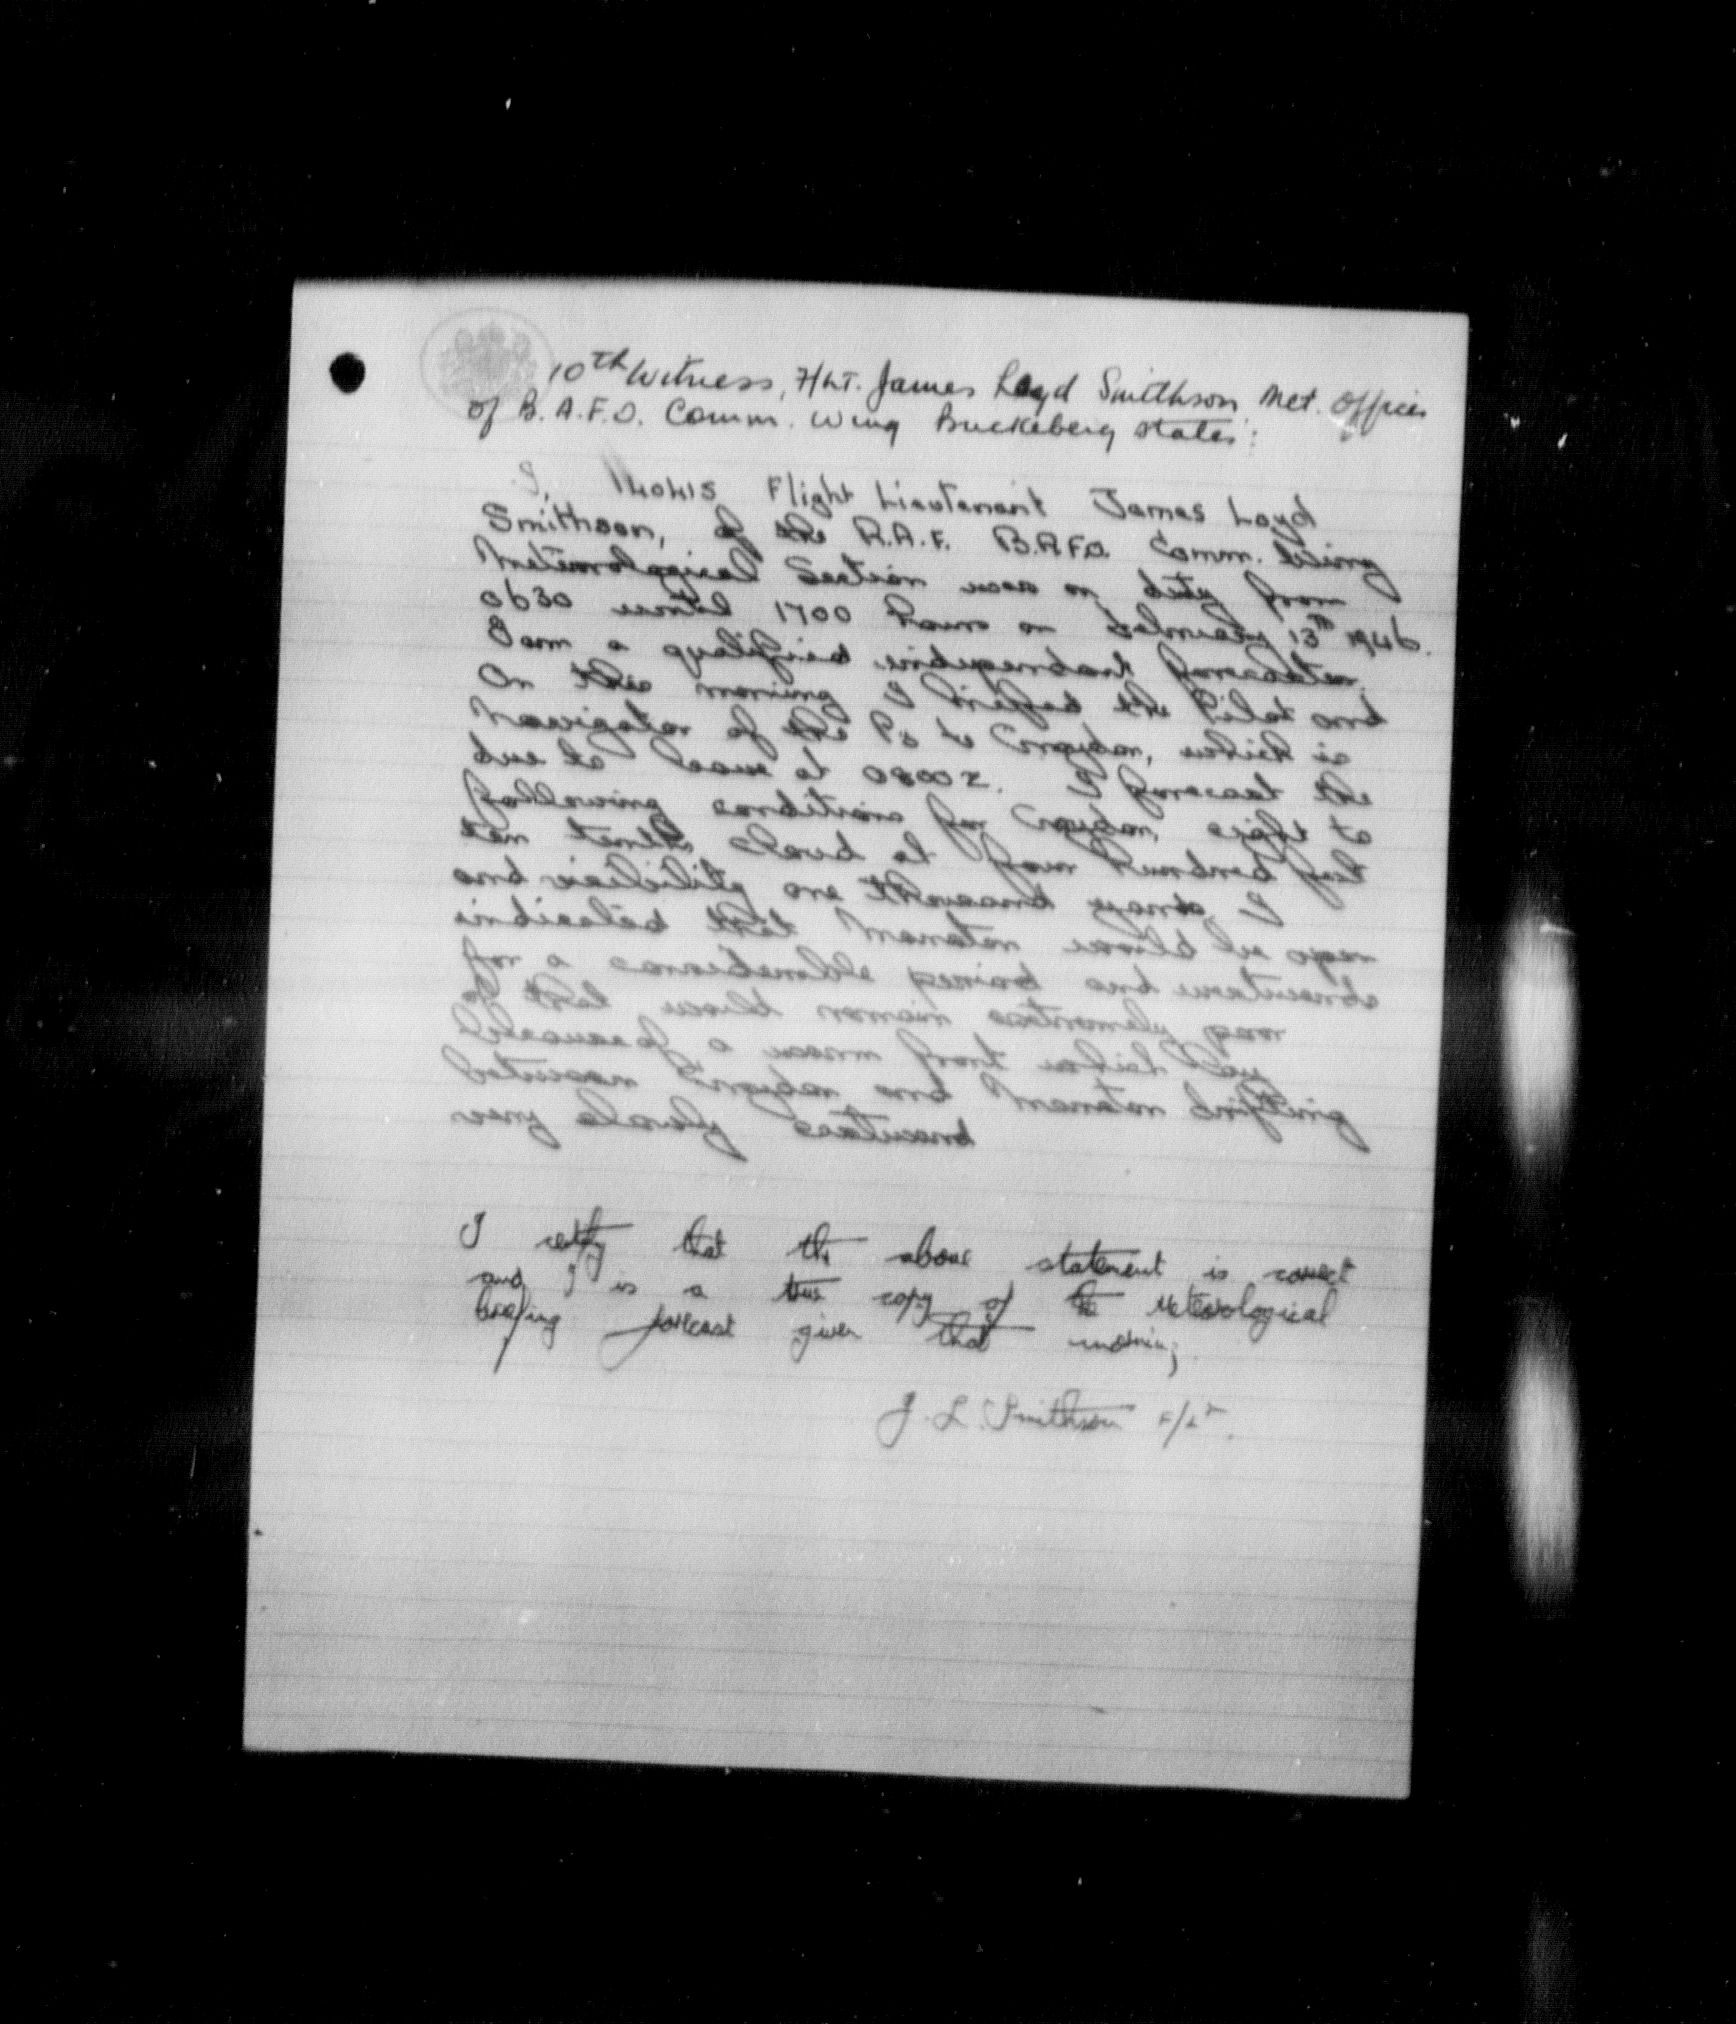 10th Witness, F/Lt. James Loyd Smithson Met. Officer
of B.A.F.O. Comm. Wing Buckeberg states:
I, 140415 Flight Lieutenant James Loyd
Smithson, of the R.A.F. B.A.F.O. Comm. Wing
Meteorological Section was on duty from
0630 until 1700 hours on February 13th 1946.
I am a qualified independent forecaster.
On this morning I briefed the Pilot and
Navigator of the P8 to Croydon, which is
due to leave at 0800z. I forecast the
following conditions for Croydon, eight to
ten tenths cloud at four hundred feet
and visibility one thousand yards. I
indicated that Manston would be open
for a considerable period and
that would remain
because of a warm front which lay
between Croydon and Manston drifting
very slowly eastward
I certify that the above statement is correct
and is a true copy of the Meteorological
briefing forecast given that morning
J. L. Smithson F/Lt.